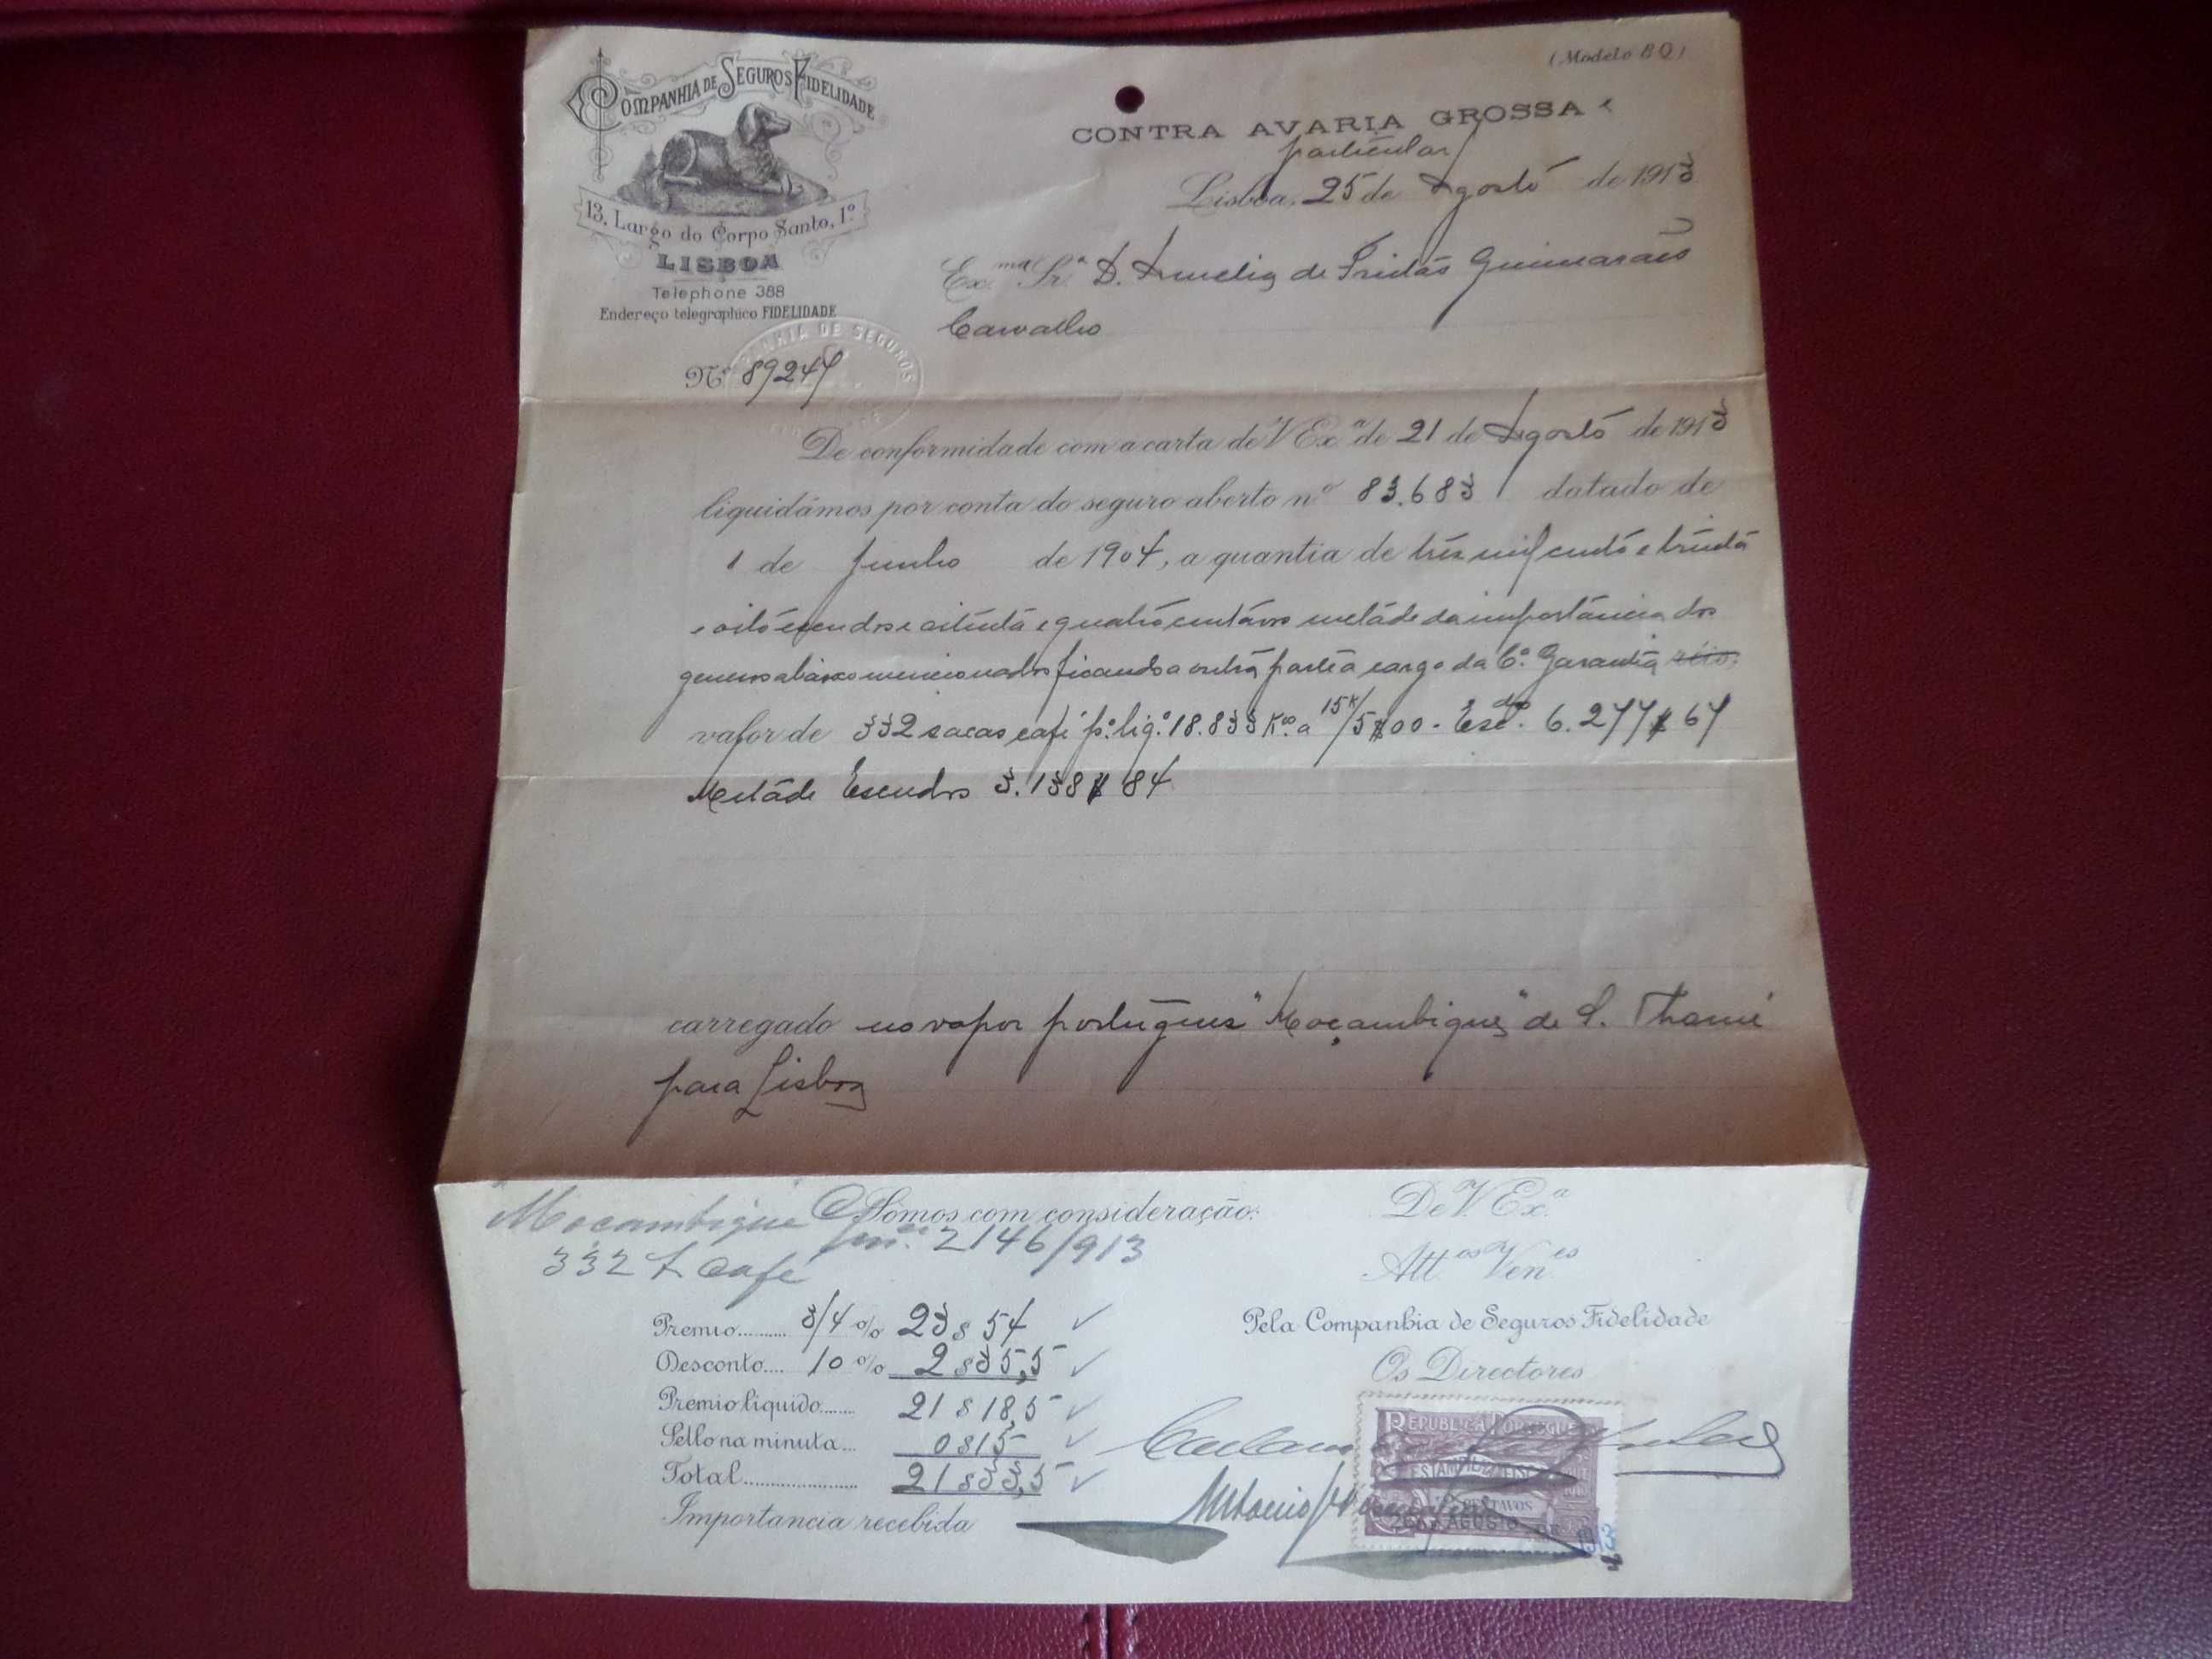 (Modelo B Q)
COMPANHIA DE SEGUROS FIDELIDADE
13, Largo do Corpo Santo, 1º
LISBOA
Telephone 388
Endereço telegraphico FIDELIDADE
COMPANHIA DE SEGUROS
CONTRA AVARIA GROSSA
particular
Lisboa, 25 de Agosto de 1913
Exma Sra D. Amelia de Freitas Guimarães
Carvalho
Nº 89247
De conformidade com a carta de V Exª de 21 de Agosto de 1913
liquidámos por conta do seguro aberto nº 83.683 datado de
1 de Junho de 1904, a quantia de três mil cento e trinta
e oito escudos e oitenta e quatro centavos metade da importância dos
generos abaixo mencionados ficando a outra parte a cargo da Cª Garantia réis.
valor de 332 sacas café pº liqº 18.833 Kos a 15K/5$00 - Escdos 6.277$67
Metade Escudos 3.138$84
carregado no vapor português "Moçambique" de S. Thomé
para Lisboa
"Moçambique" Sômos com consideração: De V. Exª
2146/913
332 S Café
Attos Venes
Premio.......... 3/4 % 23$54
Desconto.... 10 % 2$35,5
Premio liquido....... 21$18,5
Sello na minuta... 0$15
Total....................... 21$33,5
Importancia recebida
Pela Companhia de Seguros Fidelidade
Os Directores
REPUBLICA PORTUGUESA
ESTAMPILHA FISCAL
CENTAVOS
AGOSTO DE 1913
Antonio